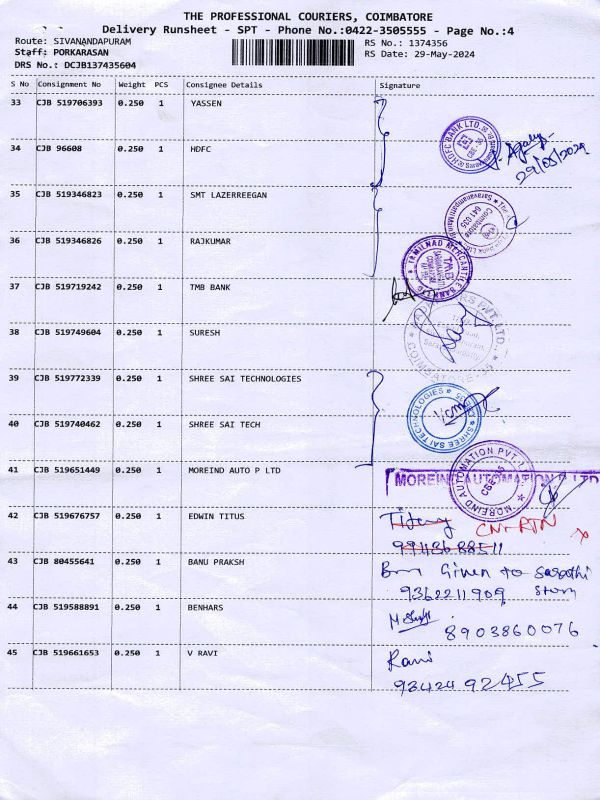 THE PROFESSIONAL COURIERS, COIMBATORE
Delivery Runsheet - SPT - Phone No.:0422-3505555 - Page No.:4
Route: SIVANANDAPURAM RS No.: 1374356
Staff: PORKARASAN RS Date: 29-May-2024
DRS No.: DCJB137435604
S No Consignment No Weight PCS Consignee Details Signature
33 CJB 519706393 0.250 1 YASSEN
34 CJB 96608 0.250 1 HDFC
HDFC BANK LTD.
29/05/2024
35 CJB 519346823 0.250 1 SMT LAZERREEGAN
Coimbatore 641 035
36 CJB 519346826 0.250 1 RAJKUMAR
TAMILNAD MERCANTILE BANK LTD
TMB
37 CJB 519719242 0.250 1 TMB BANK
38 CJB 519749604 0.250 1 SURESH
PVT. LTD.
COIMBATORE-35
39 CJB 519772339 0.250 1 SHREE SAI TECHNOLOGIES
40 CJB 519740462 0.250 1 SHREE SAI TECH
SHREE SAI TECHNOLOGIES
41 CJB 519651449 0.250 1 MOREIND AUTO P LTD
MOREIND AUTOMATION PVT. LTD
MOREIND AUTOMATION P LTD
42 CJB 519676757 0.250 1 EDWIN TITUS
CN-RTN
43 CJB 80455641 0.250 1 BANU PRAKSH
Given to Sarathi
9362211909
44 CJB 519588891 0.250 1 BENHARS
8903860076
45 CJB 519661653 0.250 1 V RAVI
Ravi
9342492455